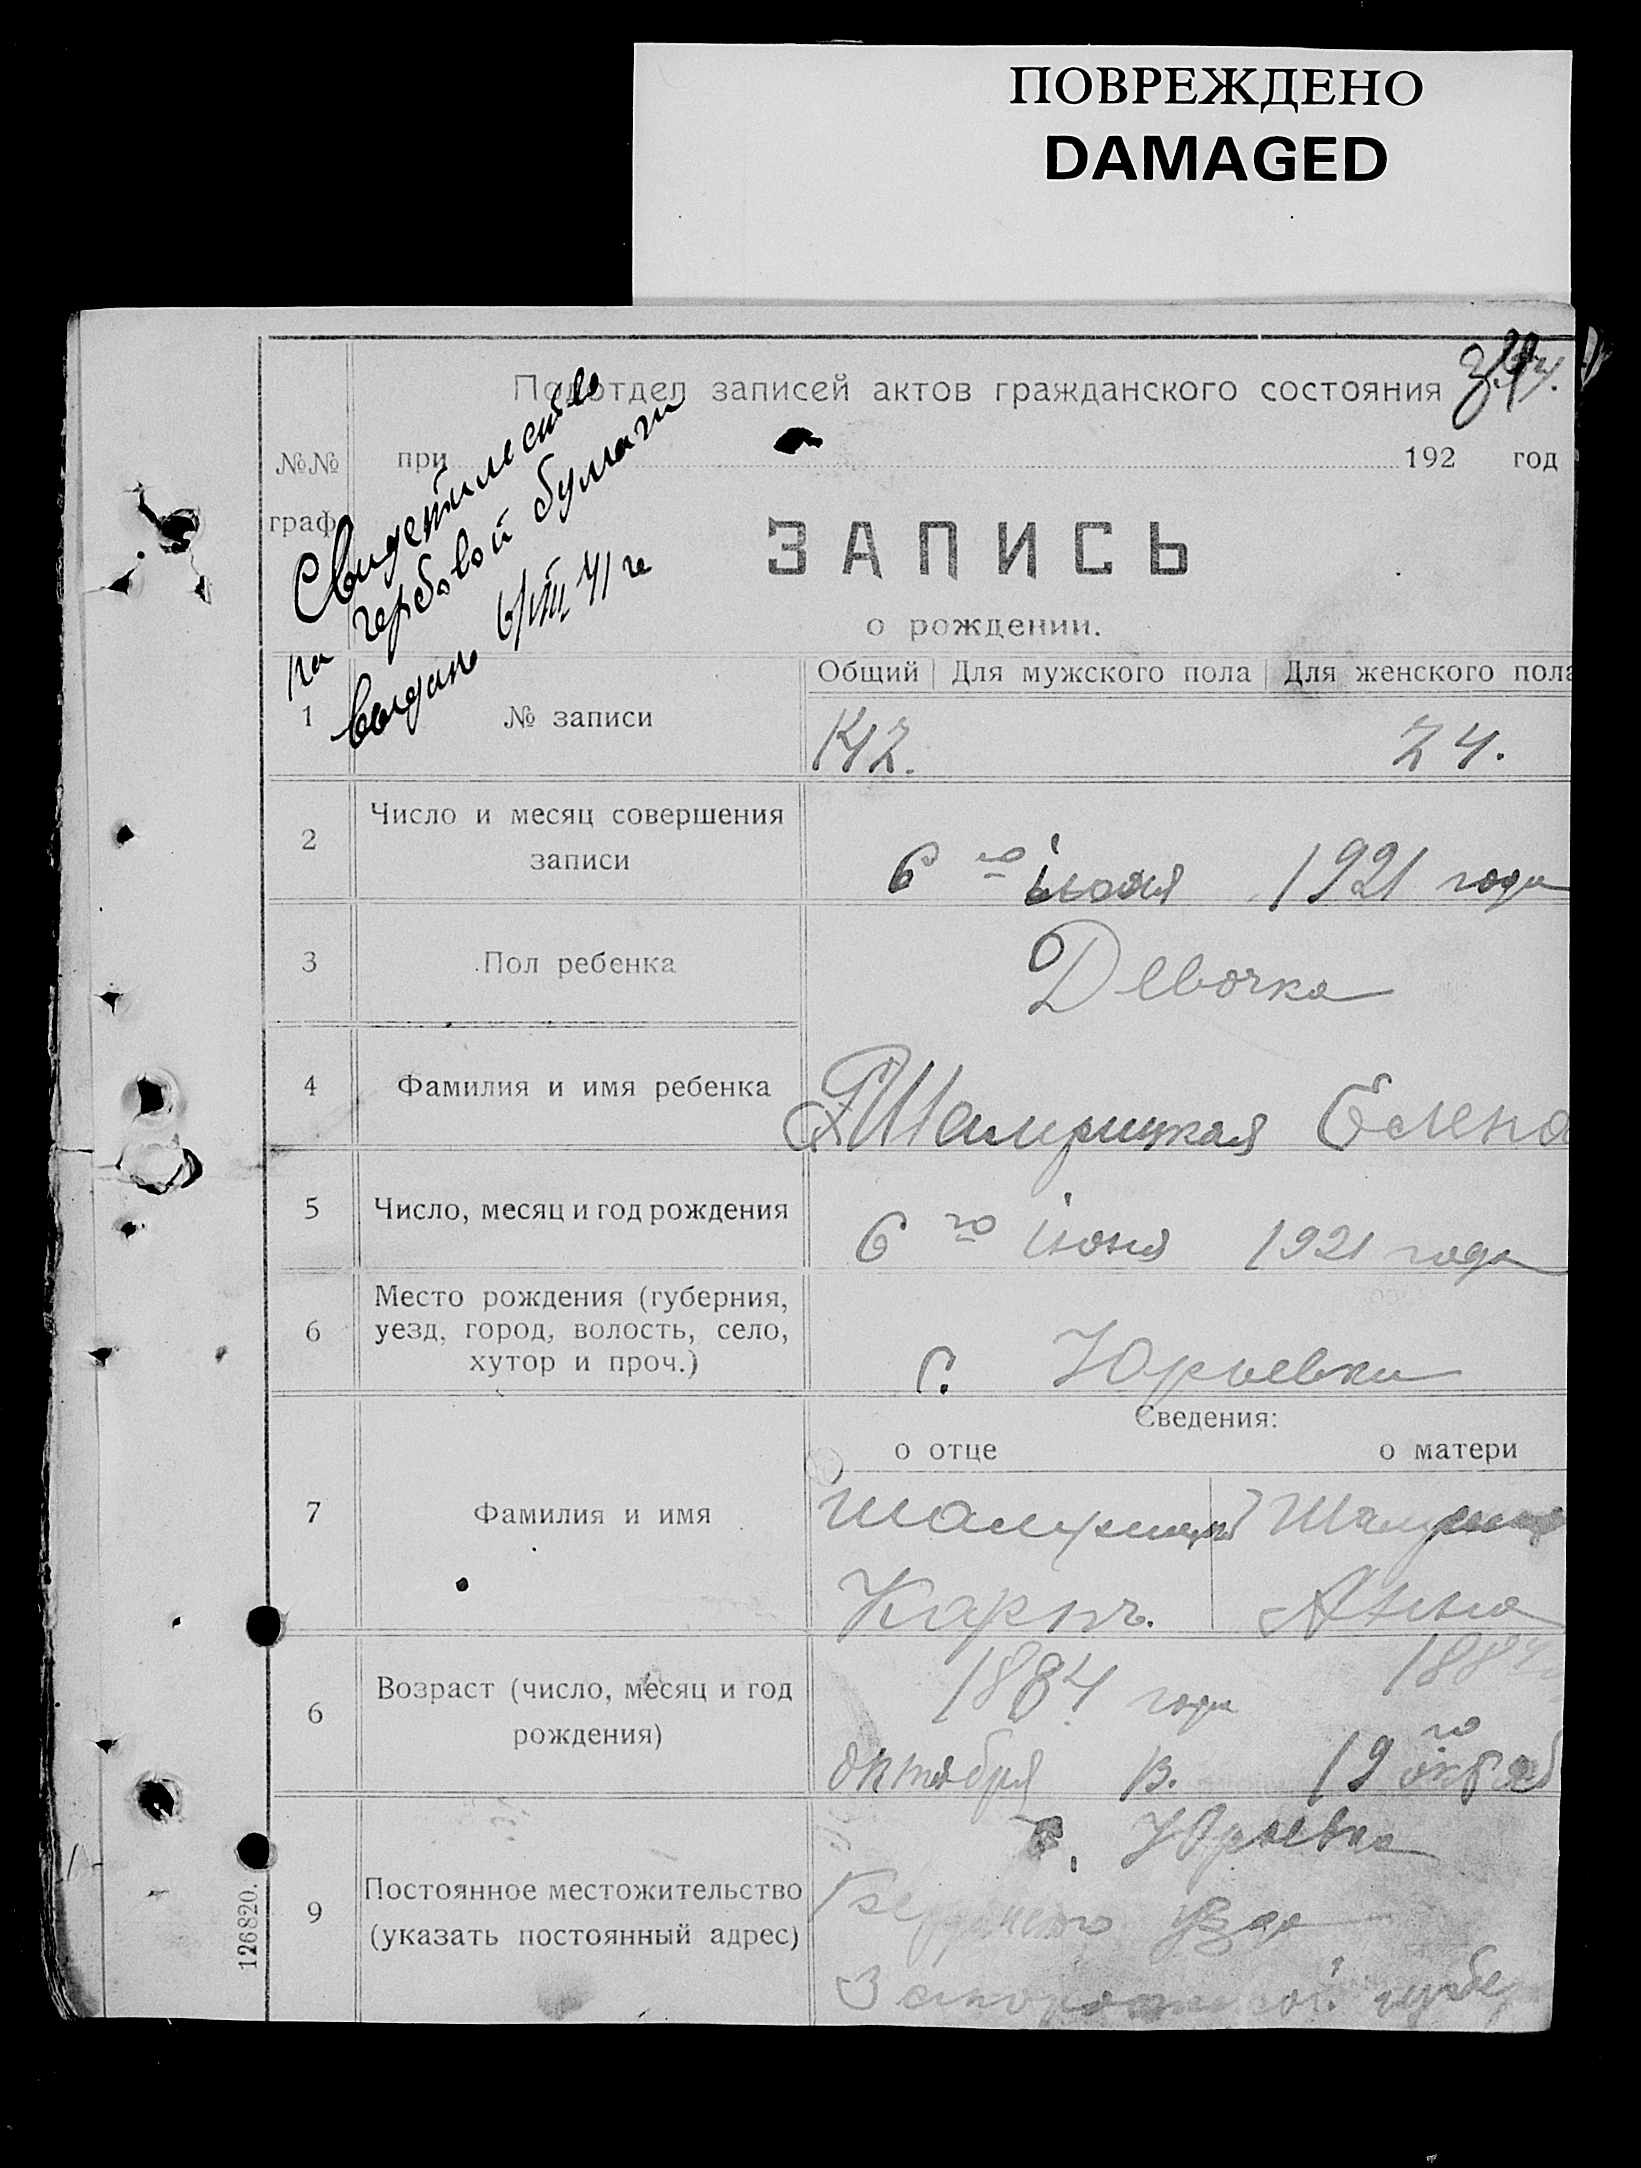 ПОВРЕЖДЕНО
DAMAGED
Подотдел записей актов гражданского состояния
№№ при 192 год
граф.
Свидетельство
на гербовой бумаги
выдано 6/VIII 41 г
ЗАПИСЬ
о рождении.
Общий Для мужского пола Для женского пола
1 № записи 42. 24.
2 Число и месяц совершения
записи
6 го июля 1921 года
3 Пол ребенка Девочка
4 Фамилия и имя ребенка Шамрицкая Елена
5 Число, месяц и год рождения 6 го іюня 1921 года
Место рождения (губерния,
6 уезд, город, волость, село,
хутор и проч.)
с. Юрьевки
Сведения:
о отце о матери
7 Фамилия и имя Шамрицкий
Карпъ. Анна
6 Возраст (число, месяц и год
рождения)
1884 года 1884
октября 13. 19 го
с. Юрьевка
9 Постоянное местожительство
(указать постоянный адрес)
уезда
Запорожской губер
126820.